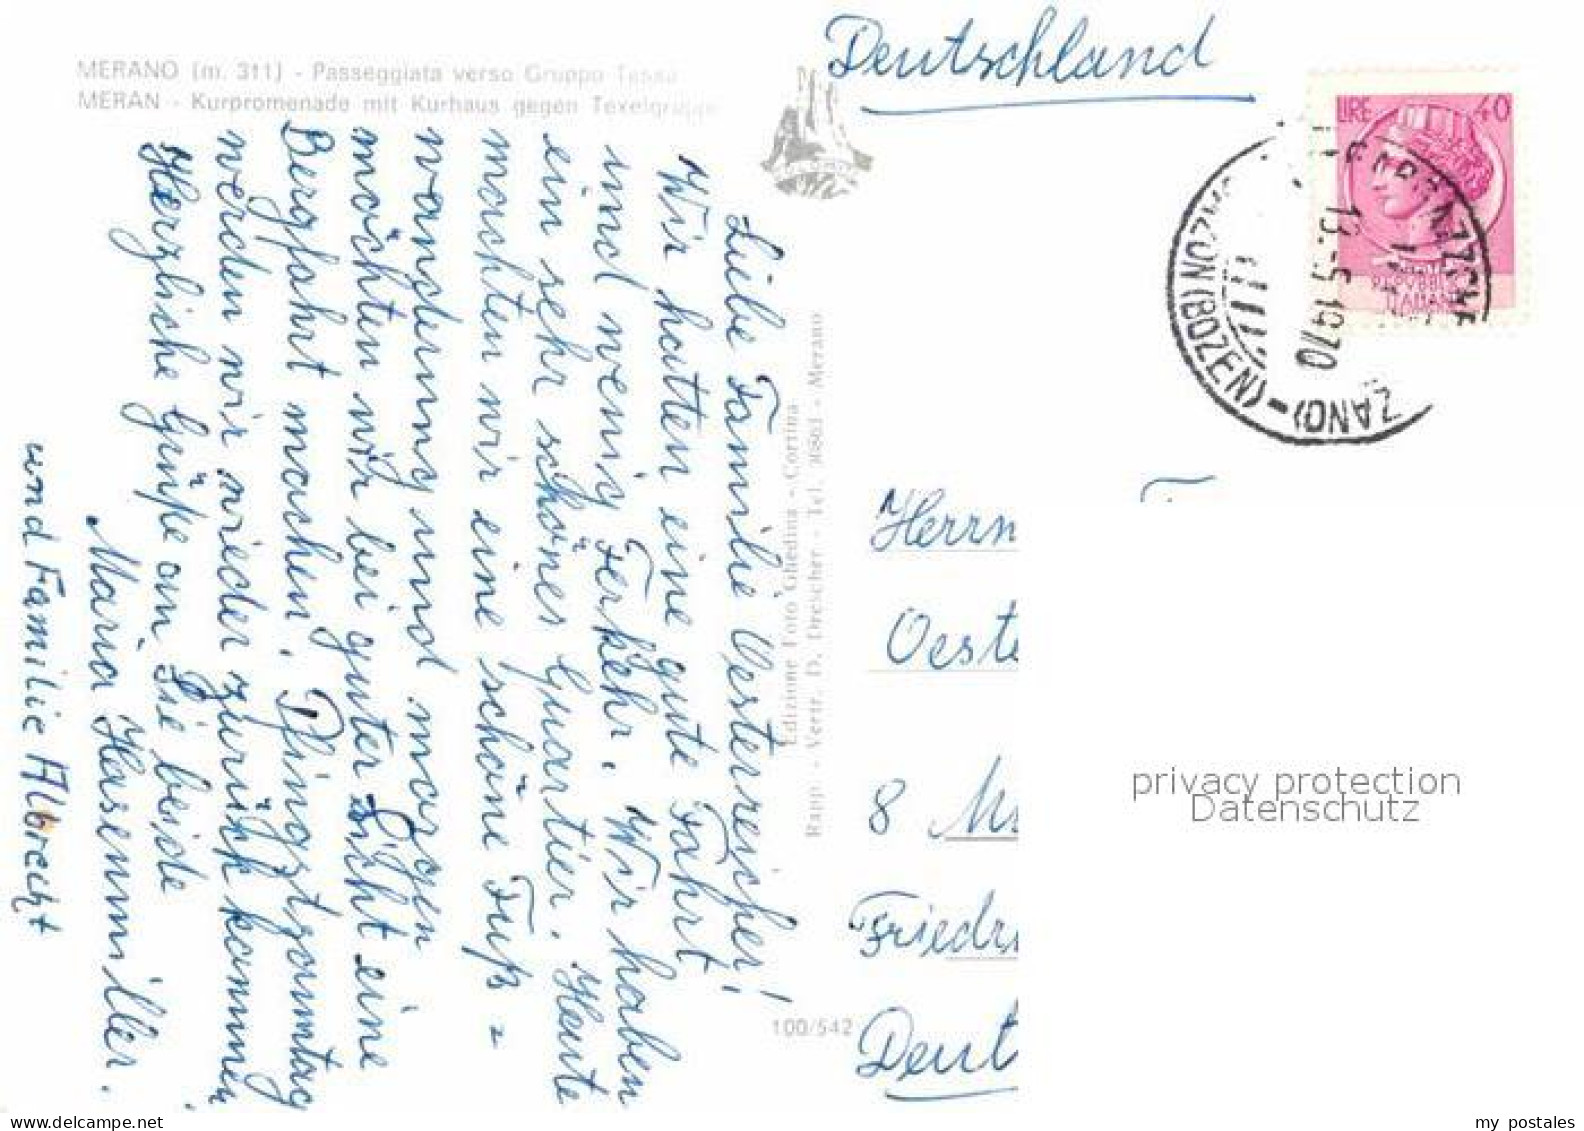 Deutschland
MERANO (m. 311) - Passeggiata verso Gruppo Tessa
MERAN - Kurpromenade mit Kurhaus gegen Texelgruppe
LIRE 40
13.-5.1970
(BOZEN) -
Liebe Familie Oesterreicher!
Wir hatten eine gute Fahrt
und wenig Ferkehr. Wir haben
ein sehr schönes Quartier. Heute
machten wir eine schöne Fuß=
wanderung und morgen
möchten wir bei guter Sicht eine
Bergfahrt machen. Pfingstsamstag
werden wir wieder zurück kommen
Herzliche Grüße an Sie beide
Maria Hasenmiller.
und Familie Albrecht
Edizione Foto Ghedina - Cortina
Rapp. - Vertr. D. Drescher - Tel. 30801 - Merano
100/542
Herrn
Oeste
8 Mü
Friedri
Deut
privacy protection
Datenschutz
www.delcampe.net
my postales